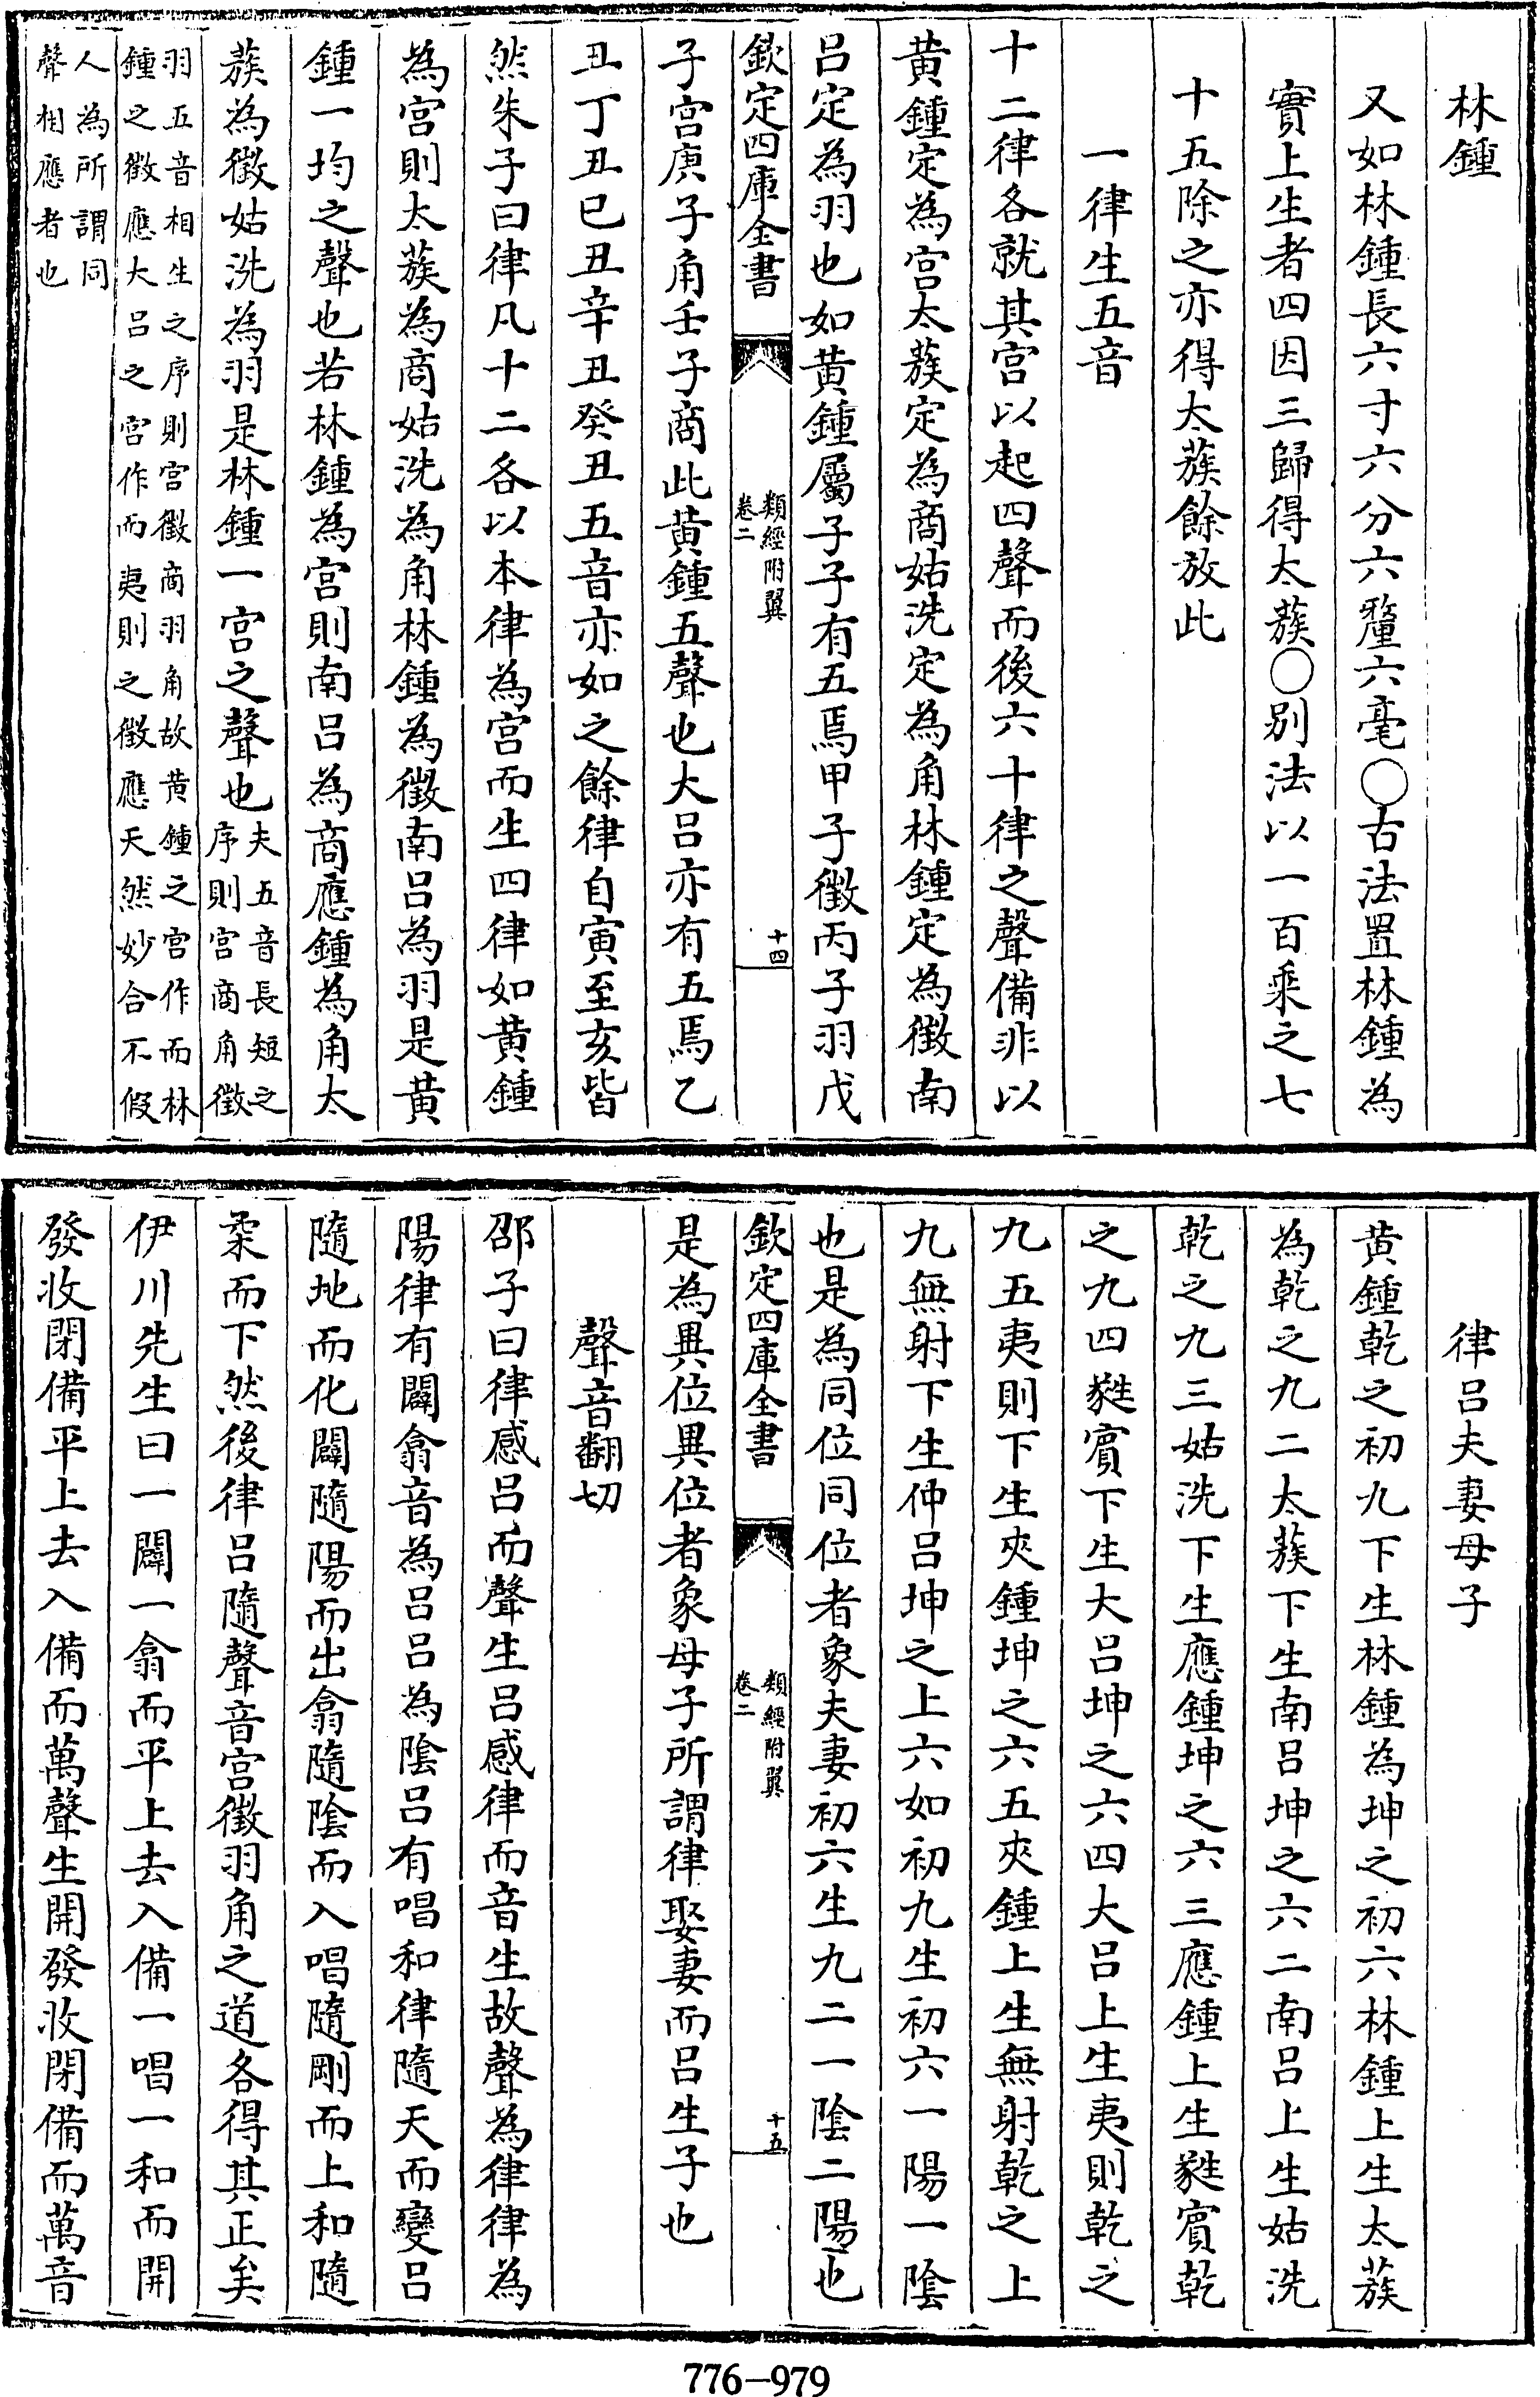 林鍾
又如林鍾長六寸六分六釐六毫○古法置林鍾為
實上生者四因三歸得太蔟○别法以一百乘之七
十五除之亦得太蔟餘放此
一律生五音
十二律各就其宫以起四聲而後六十律之聲備非以
黄鍾定為宫太蔟定為商姑洗定為角林鍾定為徵南
吕定為羽也如黄鍾屬子子有五焉甲子徵丙子羽戊
欽定四庫全書
類經附翼
卷二
十四
子宫庚子角壬子商此黄鍾五聲也大吕亦有五焉乙
丑丁丑已丑辛丑癸丑五音亦如之餘律自寅至亥皆
然朱子曰律凡十二各以本律為宫而生四律如黄鍾
為宫則太蔟為商姑洗為角林鍾為徵南吕為羽是黄
鍾一均之聲也若林鍾為宫則南吕為商應鍾為角太
蔟為徵姑洗為羽是林鍾一宫之聲也夫五音長短之
序則宫商角徵
羽五音相生之序則宫徵商羽角故黄鍾之宫作而林
鍾之徵應大吕之宫作而夷則之徵應天然妙合不假
人為所謂同
聲相應者也
律吕夫妻母子
黄鍾乾之初九下生林鍾為坤之初六林鍾上生太蔟
為乾之九二太蔟下生南吕坤之六二南吕上生姑洗
乾之九三姑洗下生應鍾坤之六三應鍾上生蕤賓乾
之九四蕤賓下生大吕坤之六四大吕上生夷則乾之
九五夷則下生夾鍾坤之六五夾鍾上生無射乾之上
九無射下生仲吕坤之上六如初九生初六一陽一陰
也是為同位同位者象夫妻初六生九二一陰二陽也
欽定四庫全書
類經附翼
卷二
十五
是為異位異位者象母子所謂律娶妻而吕生子也
聲音翻切
邵子曰律感吕而聲生吕感律而音生故聲為律律為
陽律有闢翕音為吕吕為陰吕有唱和律隨天而變吕
隨地而化闢隨陽而出翕隨陰而入唱隨剛而上和隨
柔而下然後律吕隨聲音宫徵羽角之道各得其正矣
伊川先生曰一闢一翕而平上去入備一唱一和而開
發收閉備平上去入備而萬聲生開發收閉備而萬音
776-979